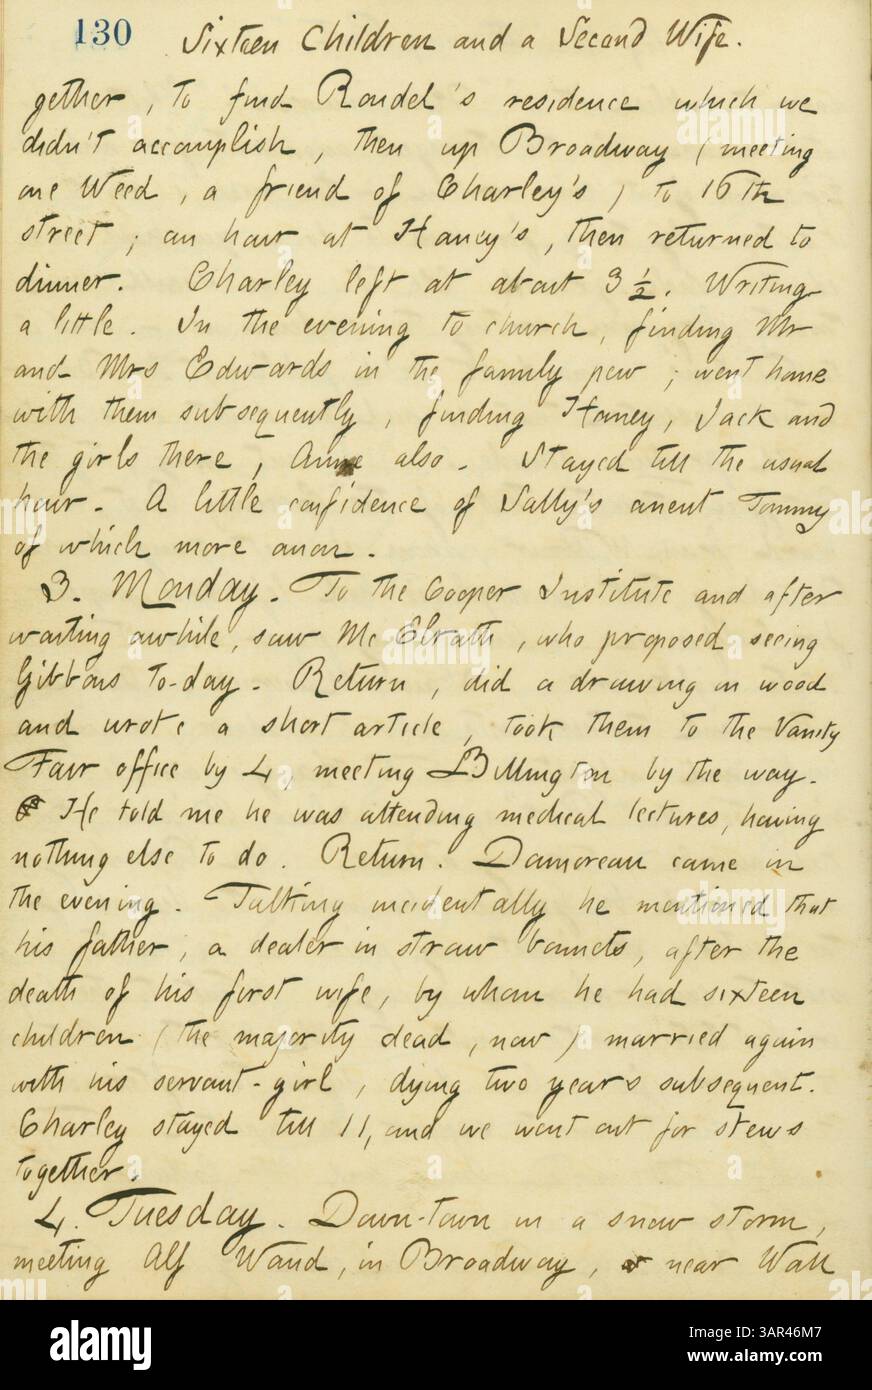 130 Sixteen Children and a Second Wife.
gether, to find Rondel's residence which we
didn't accomplish, then up Broadway (meeting
one Weed, a friend of Charley's) to 16th
street; an hour at Haney's, then returned to
dinner. Charley left at about 3 ½. Writing
a little. In the evening to church, finding Mr
and Mrs Edwards in the family pew; went home
with them subsequently, finding Haney, Jack and
the girls there, Anne also. Stayed till the usual
hour. A little confidence of Sally's anent Tommy
of which more anon.
3. Monday. To the Cooper Institute and after
waiting awhile, saw Mc Elrath, who proposed seeing
Gibbons to-day. Return, did a drawing on wood
and wrote a short article, took them to the Vanity
Fair office by 4, meeting Billington by the way.
He told me he was attending medical lectures, having
nothing else to do. Return. Damoreau came in
the evening. Talking incidentally he mentioned that
his father, a dealer in straw bonnets, after the
death of his first wife, by whom he had sixteen
children (the majority dead, now) married again
with his servant-girl, dying two years subsequent.
Charley stayed till 11, and we went out for stews
together.
4. Tuesday. Down-town in a snow storm,
meeting Alf Waud, in Broadway, near Wall
alamy
Image ID: 3AR46M7
www.alamy.com